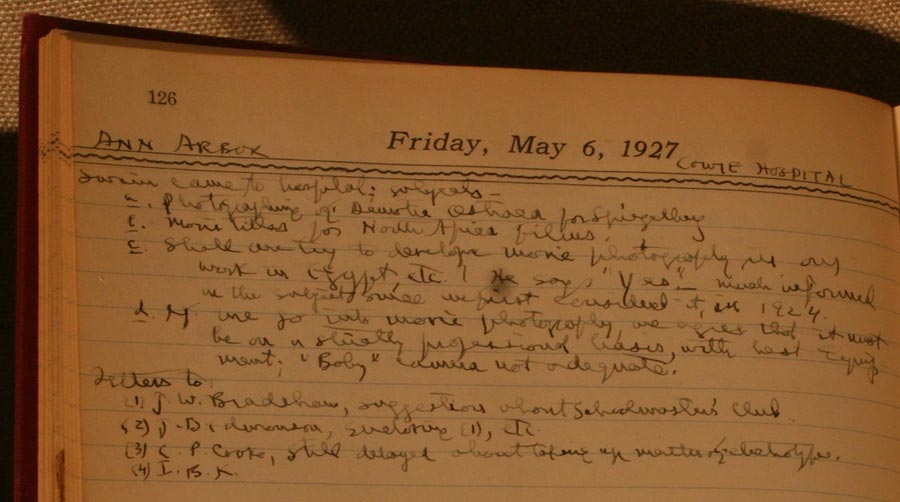 126
Friday, May 6, 1927
ANN ARBOR
COWIE HOSPITAL
Swain came to hospital; subjects —
a. Photographing of Demotic Ostraca for Spiegelberg
b. Movie titles for North Africa films.
c. Shall we try to develop movie photography in our
work in Egypt, etc.? He says "Yes" — much informed
in the subject since we first considered it, in 1924.
d. If we go into movie photography, we agree that it must
be on a strictly professional basis, with best equip
ment; "Boby" camera not adequate.
Letters to
(1) J. W. Bradshaw, suggestions about Schoolmasters' Club
(2) D. B. enclosing (1), etc.
(3) C. P. Cooke, still delayed about taking up matter of electrotype.
(4) I. B. K.